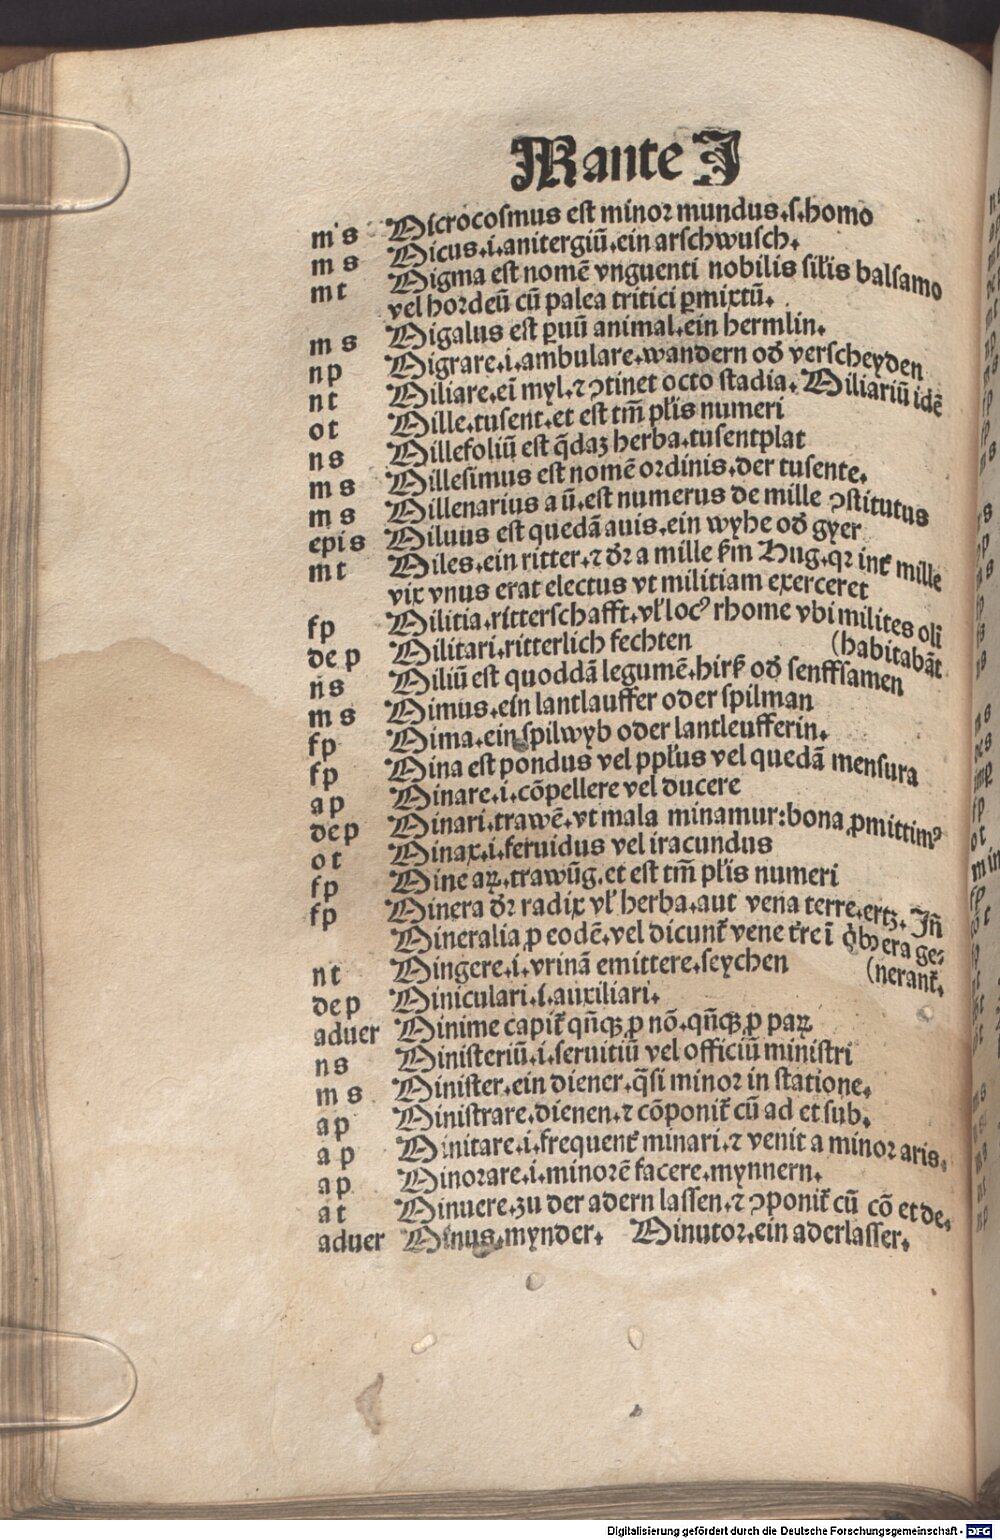 M ante J
m s Microcosmus est minor mundus.s.homo
m s Micus.i.anitergiū.ein arschwusch.
m t Migma est nomē vnguenti nobilis silis balsamo
vel hordeū cū palea tritici ꝑmixtū.
m s Migalus est ꝑuū animal.ein hermlin.
n p Migrare.i.ambulare.wandern od verscheyden
n t Miliare.eī myl.⁊ ꝯtinet octo stadia. Miliariū idē
o t Mille.tusent.et est tm̄ pl̓is numeri
n s Millefoliū est q̄daꝫ herba.tusentplat
m s Millesimus est nomē ordinis.der tusente.
m s Millenarius a ū.est numerus de mille ꝯstitutus
epi s Miluus est quedā auis.ein wyhe od gyer
m t Miles.ein ritter.⁊ dr̄ a mille ẜm Hug.qr int̓ mille
vix vnus erat electus vt militiam exerceret
f p Militia.ritterschafft.vl̓ locꝰ rhome vbi milites oli
de p Militari.ritterlich fechten (habitabāt
n s Miliū est quoddā legumē.hirß od senffsamen
m s Mimus.ein lantlauffer oder spilman
f p Mima.ein spilwyb oder lantleufferin.
f p Mina est pondus vel ppl̓us vel quedā mensura
a p Minare.i.cōpellere vel ducere
de p Minari.trawē.vt mala minamur:bona ꝓmittimꝰ
o t Minax.i.feruidus vel iracundus
f p Mine aꝝ.trawūg.et est tm̄ pl̓is numeri
f p Minera dr̄ radix vl̓ herba.aut vena terre.ertz. Jn̄
Mineralia ꝓ eodē.vel dicunt̓ vene t̓re ī qͥbꝫ era ge⸗
n t Mingere.i.vrinā emittere.seychen (nerant̓.
de p Miniculari.i.auxiliari.
aduer Minime capit̓ qn̄qꝫ ꝓ nō.qn̄qꝫ ꝓ paꝝ
n s Ministeriū.i.seruitiū vel officiū ministri
m s Minister.ein diener.q̄si minor in statione.
a p Ministrare.dienen.⁊ cōponit̓ cū ad et sub.
a p Minitare.i.frequent̓ minari.⁊ venit a minor aris.
a p Minorare.i.minorē facere.mynnern.
a t Minuere.zu der adern lassen.⁊ ꝯponit̓ cū cō et de.
aduer Minus.mynder. Minutor.ein aderlasser.
Digitalisierung gefördert durch die Deutsche Forschungsgemeinschaft - DFG